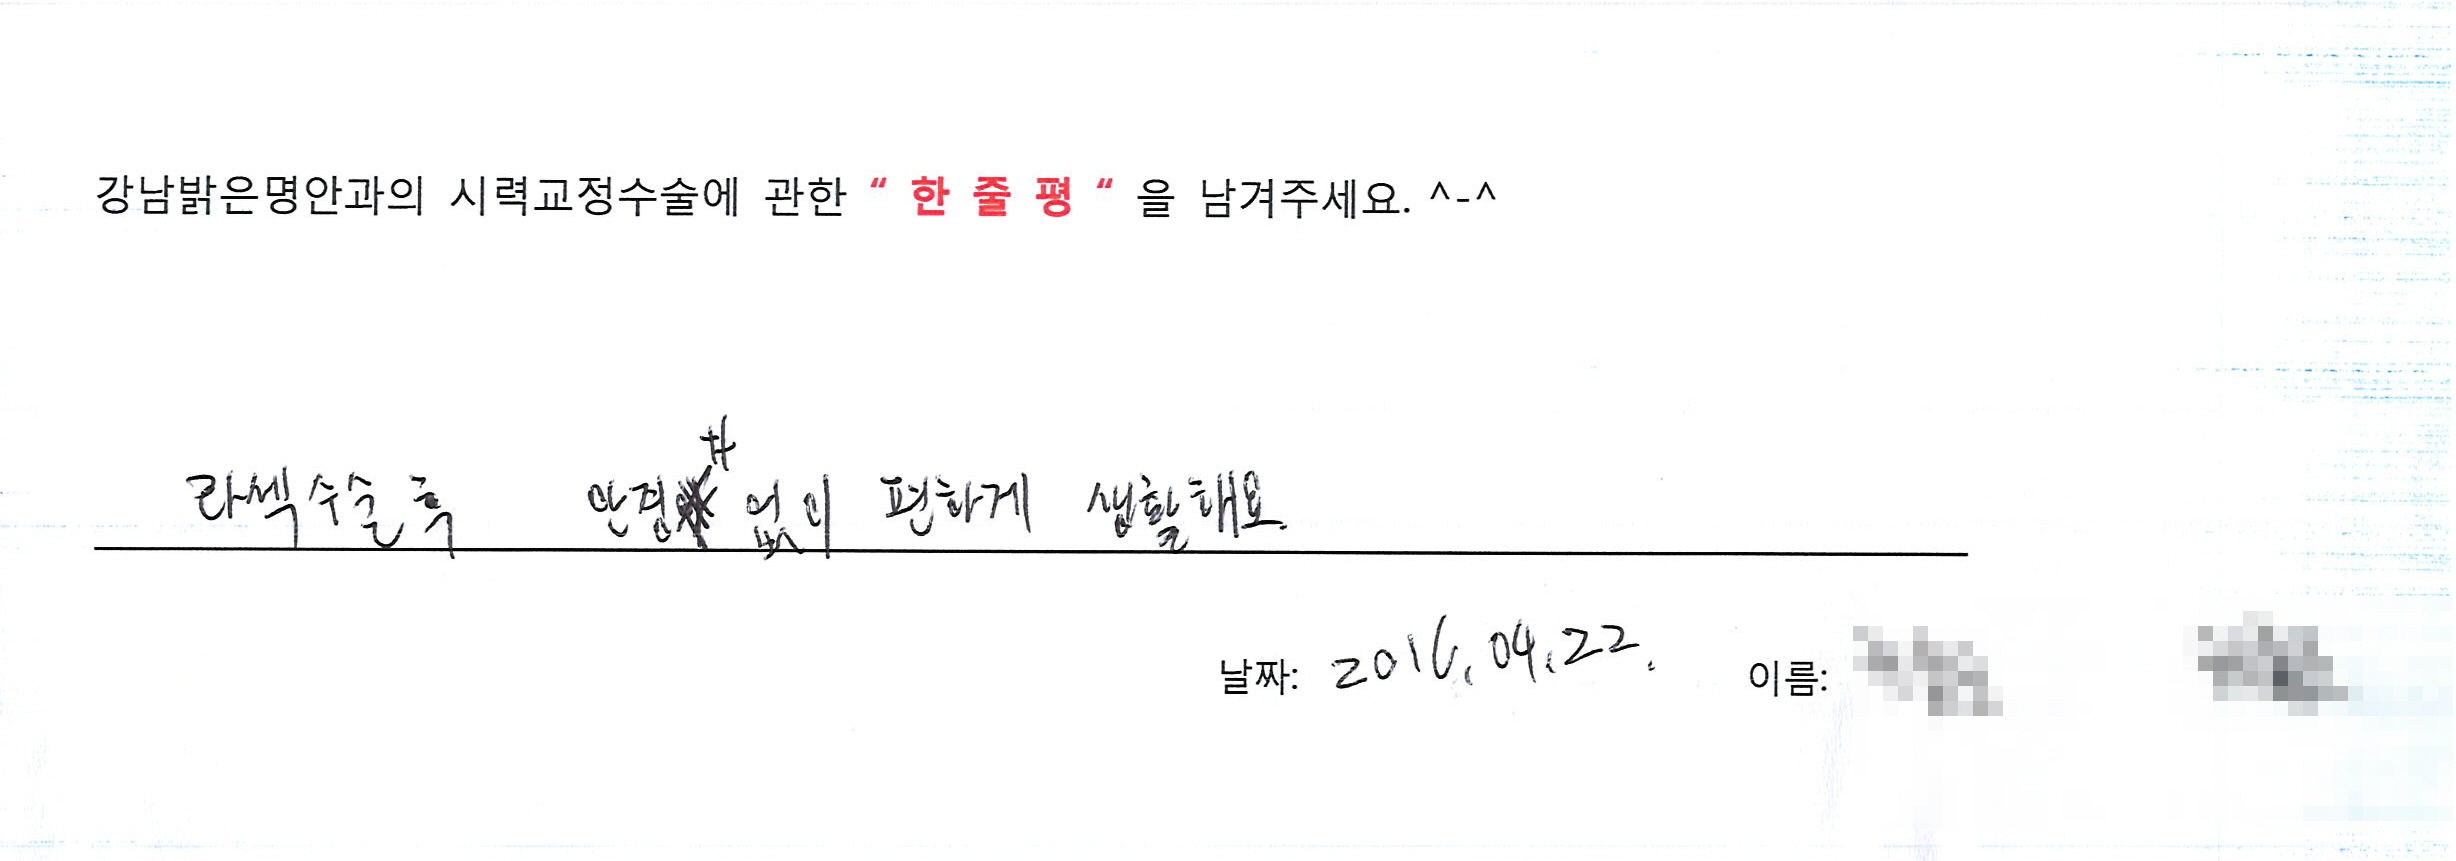 강남밝은명안과의 시력교정수술에 관한 “ 한 줄 평 “ 을 남겨주세요. ^-^
라섹수술 후 안경 없이 편하게 생활해요.
날짜: 2016. 04. 22. 이름: